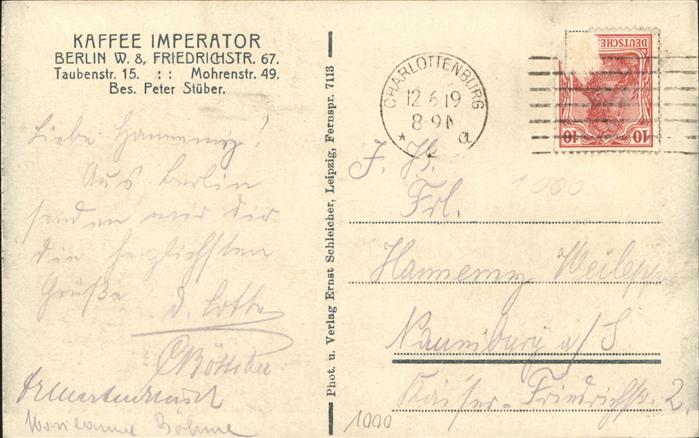 KAFFEE IMPERATOR
BERLIN W. 8, FRIEDRICHSTR. 67.
Taubenstr. 15. : : Mohrenstr. 49.
Bes. Peter Stüber.
Liebe Hannemy!
Aus Berlin
senden wir dir
die herzlichsten
Grüße d. Lotte
Böhme
Phot. u. Verlag Ernst Schleicher, Leipzig, Fernspr. 7113
CHARLOTTENBURG
12 6 19
8-9N
* a
DEUTSCHES
10 10
1000
Frl.
Hannemy
Naumburg a/S.
Kaiser-Friedrichstr. 2.
1000